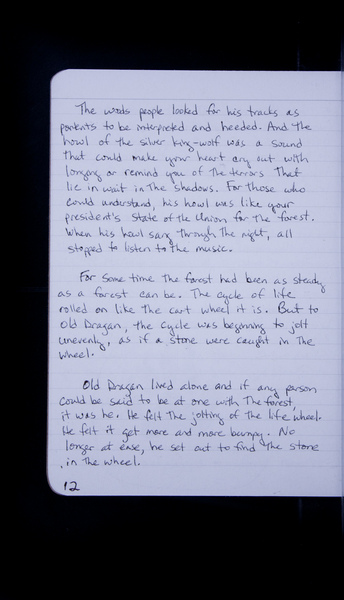 The woods people looked for his tracks as
portents to be interpreted and heeded. And the
howl of the silver king-wolf was a sound
that could make your heart cry out with
longing or remind you of the terrors that
lie in wait in the shadows. For those who
could understand, his howl was like your
president's State of the Union for the forest.
When his howl sang through the night, all
stopped to listen to the music.
For some time the forest had been as steady
as a forest can be. The cycle of life
rolled on like the cart wheel it is. But to
Old Dragan, the cycle was beginning to jolt
unevenly, as if a stone were caught in the
wheel.
Old Dragan lived alone and if any person
could be said to be at one with the forest,
it was he. He felt the jolting of the life wheel.
He felt it get more and more bumpy. No
longer at ease, he set out to find the stone
in the wheel.
12